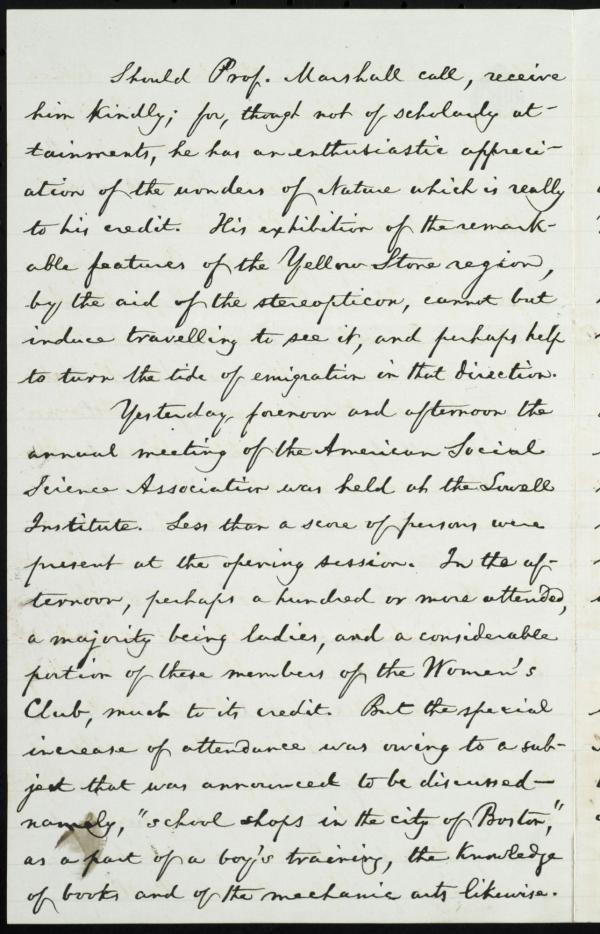 Should Prof. Marshall call, receive
him kindly; for, though not of scholarly at-
tainments, he has an enthusiastic appreci-
ation of the wonders of Nature which is really
to his credit. His exhibition of the remark-
able features of the Yellow Stone region,
by the aid of the stereopticon, cannot but
induce travelling to see it, and perhaps help
to turn the tide of emigration in that direction.
Yesterday, forenoon and afternoon the
annual meeting of the American Social
Science Association was held at the Lowell
Institute. Less than a score of persons were
present at the opening session. In the af-
ternoon, perhaps a hundred or more attended,
a majority being ladies, and a considerable
portion of these members of the Women's
Club, much to its credit. But the special
increase of attendance was owing to a sub-
ject that was announced to be discussed—
namely, "school shops in the city of Boston,"
as a part of a boy's training, the knowledge
of books and of the mechanic arts likewise.